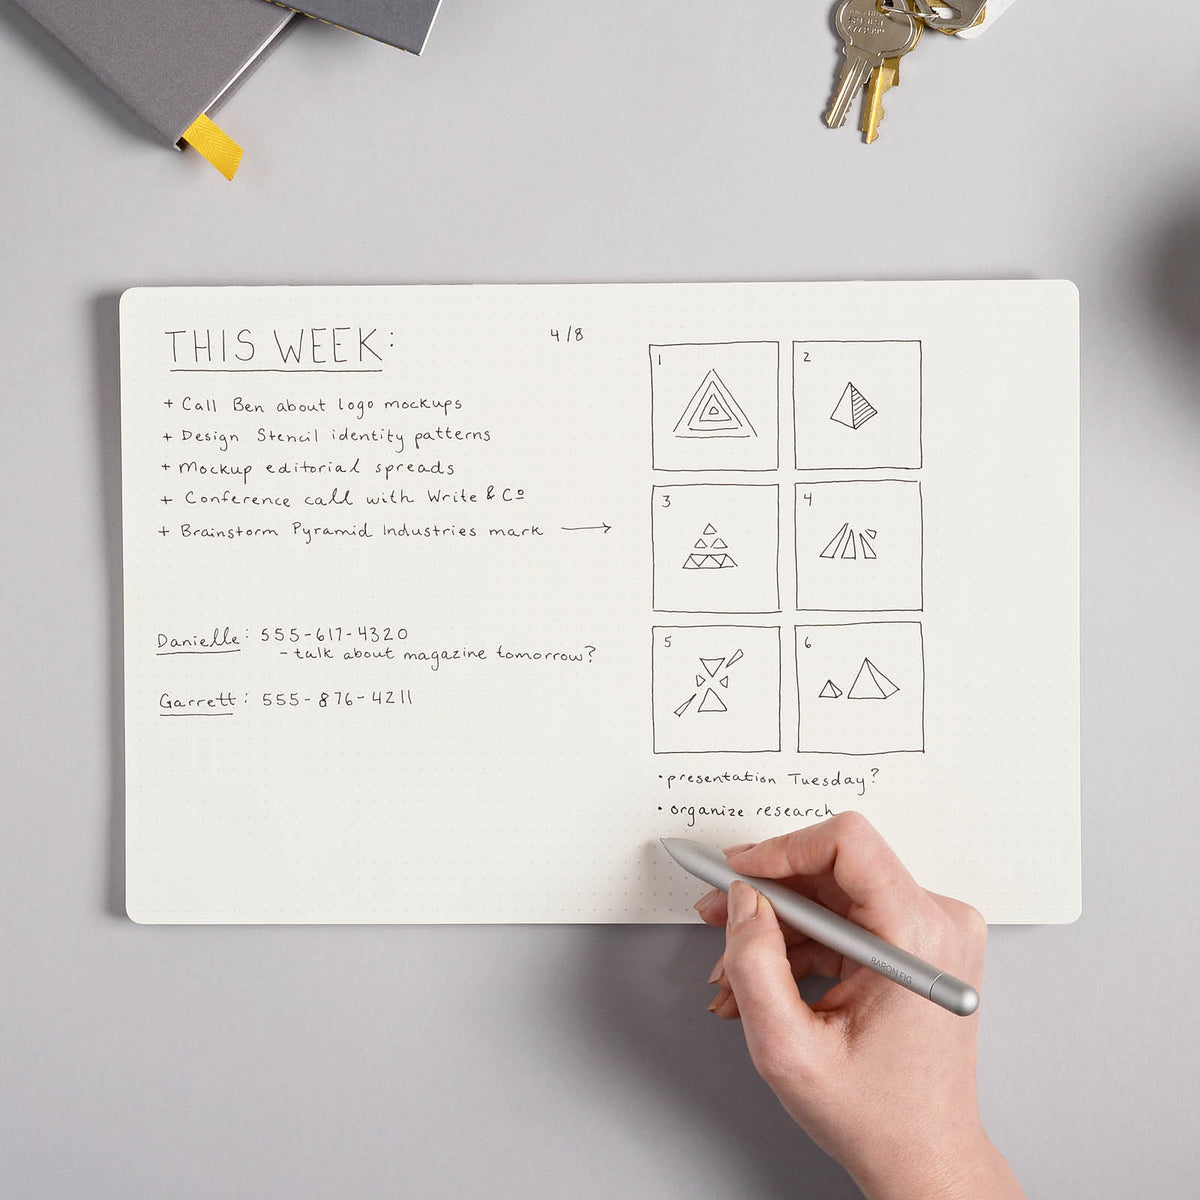 THIS WEEK:
4/8
+ Call Ben about logo mockups
+ Design Stencil identity patterns
+ Mockup editorial spreads
+ Conference call with Write & Cº
+ Brainstorm Pyramid Industries mark →
Danielle: 555-617-4320
- talk about magazine tomorrow?
Garrett: 555-876-4211
1
2
3
4
5
6
• presentation Tuesday?
• organize research
BARON FIG